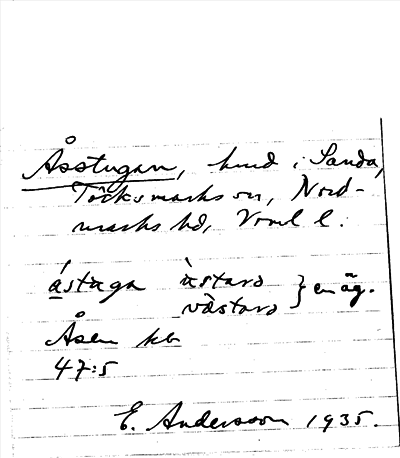 Åsstugan, hmd i Sanda,
Töcksmarks sn, Nord-
marks hd, Vrml l.
ástuga àstard } en äg.
vàstard
Åsen kb
47:5
E. Andersson 1935.